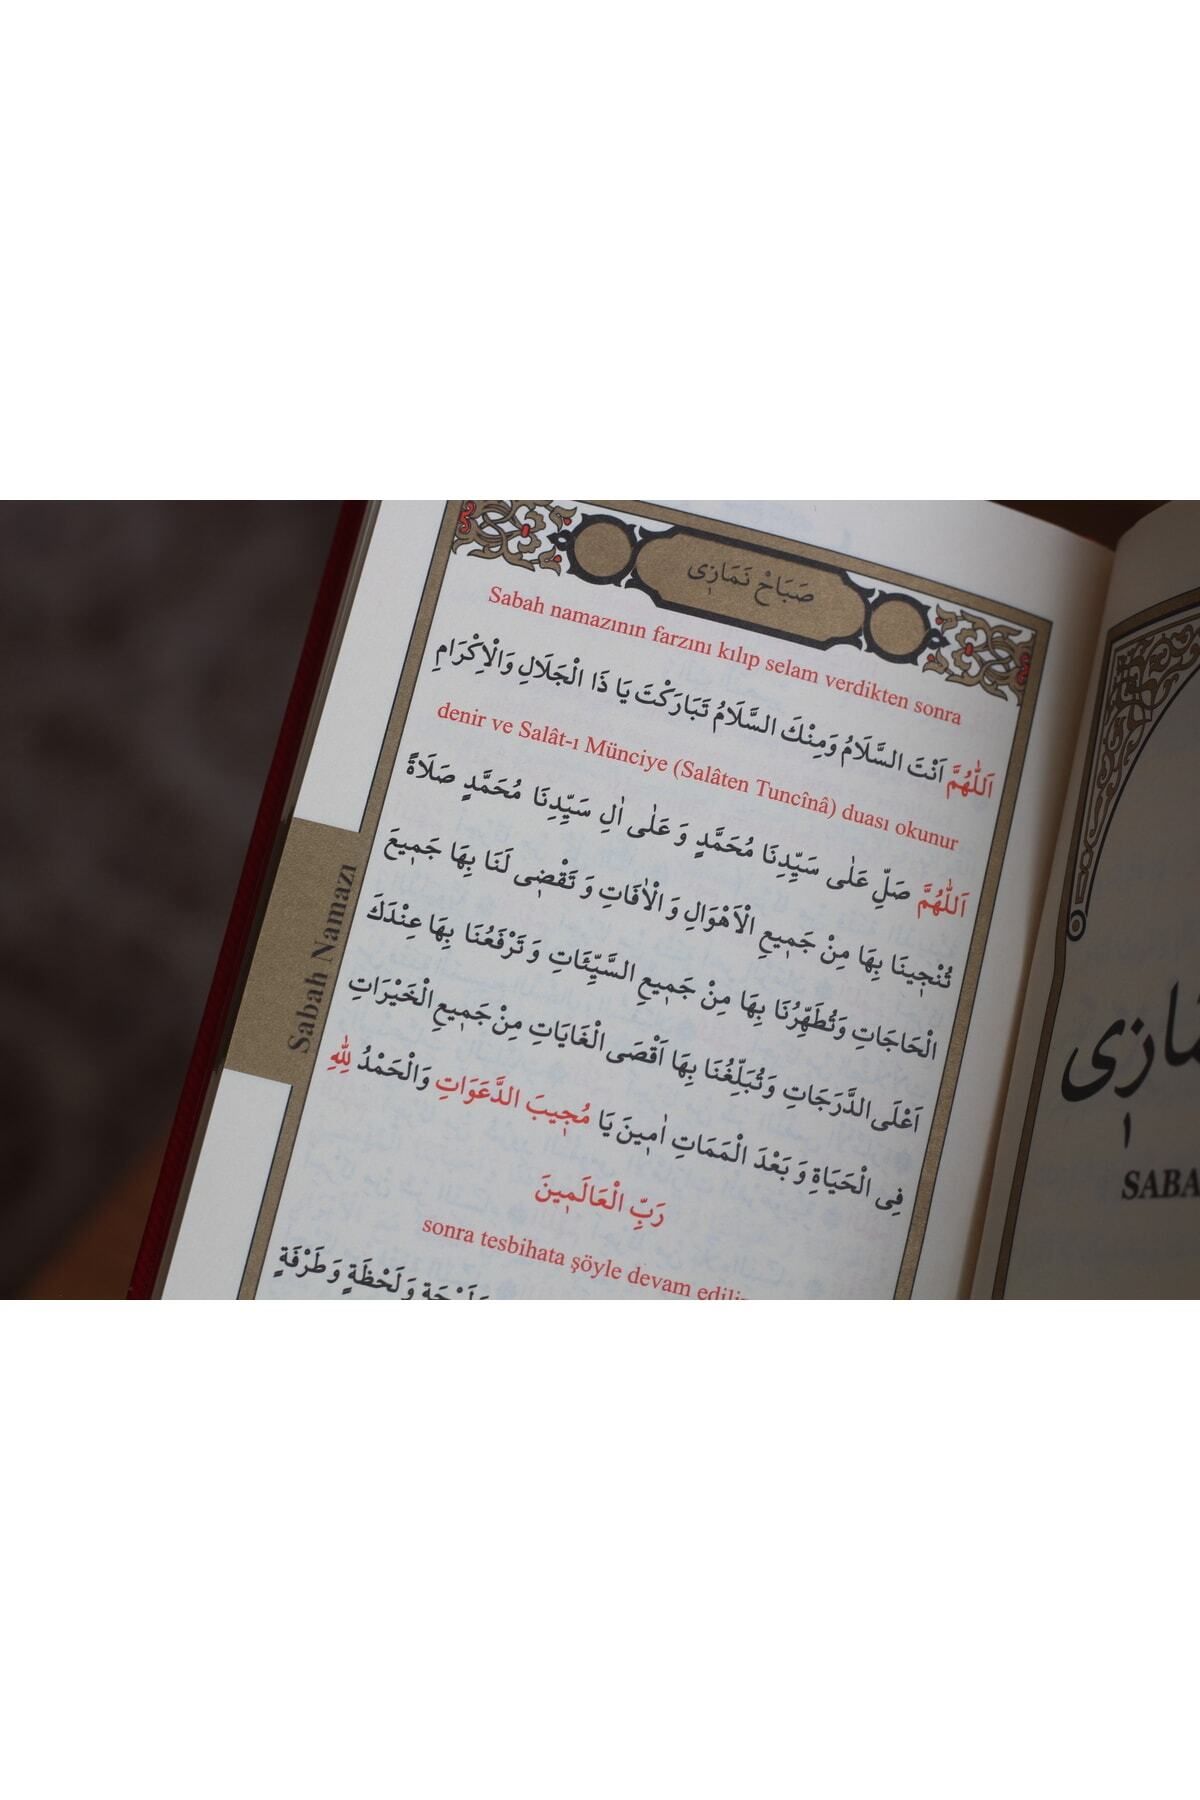 صَبَاحْ نَمَازِى
Sabah namazının farzını kılıp selam verdikten sonra
اَللّٰهُمَّ اَنْتَ السَّلَامُ وَمِنْكَ السَّلَامُ تَبَارَكْتَ يَا ذَا الْجَلَالِ وَالْاِكْرَامِ
denir ve Salât-ı Münciye (Salâten Tuncînâ) duası okunur
اَللّٰهُمَّ صَلِّ عَلٰى سَيِّدِنَا مُحَمَّدٍ وَ عَلٰى اٰلِ سَيِّدِنَا مُحَمَّدٍ صَلَاةً
تُنْجِينَا بِهَا مِنْ جَمِيعِ الْاَهْوَالِ وَ الْاٰفَاتِ وَ تَقْضِى لَنَا بِهَا جَمِيعَ
الْحَاجَاتِ وَتُطَهِّرُنَا بِهَا مِنْ جَمِيعِ السَّيِّئَاتِ وَ تَرْفَعُنَا بِهَا عِنْدَكَ
اَعْلَى الدَّرَجَاتِ وَتُبَلِّغُنَا بِهَا اَقْصَى الْغَايَاتِ مِنْ جَمِيعِ الْخَيْرَاتِ
فِى الْحَيَاةِ وَ بَعْدَ الْمَمَاتِ اٰمِينَ يَا مُجِيبَ الدَّعَوَاتِ وَالْحَمْدُ لِلّٰهِ
رَبِّ الْعَالَمِينَ
sonra tesbihata şöyle devam edilir
وَلَحْظَةٍ وَطَرْفَةٍ
Sabah Namazı
SABA